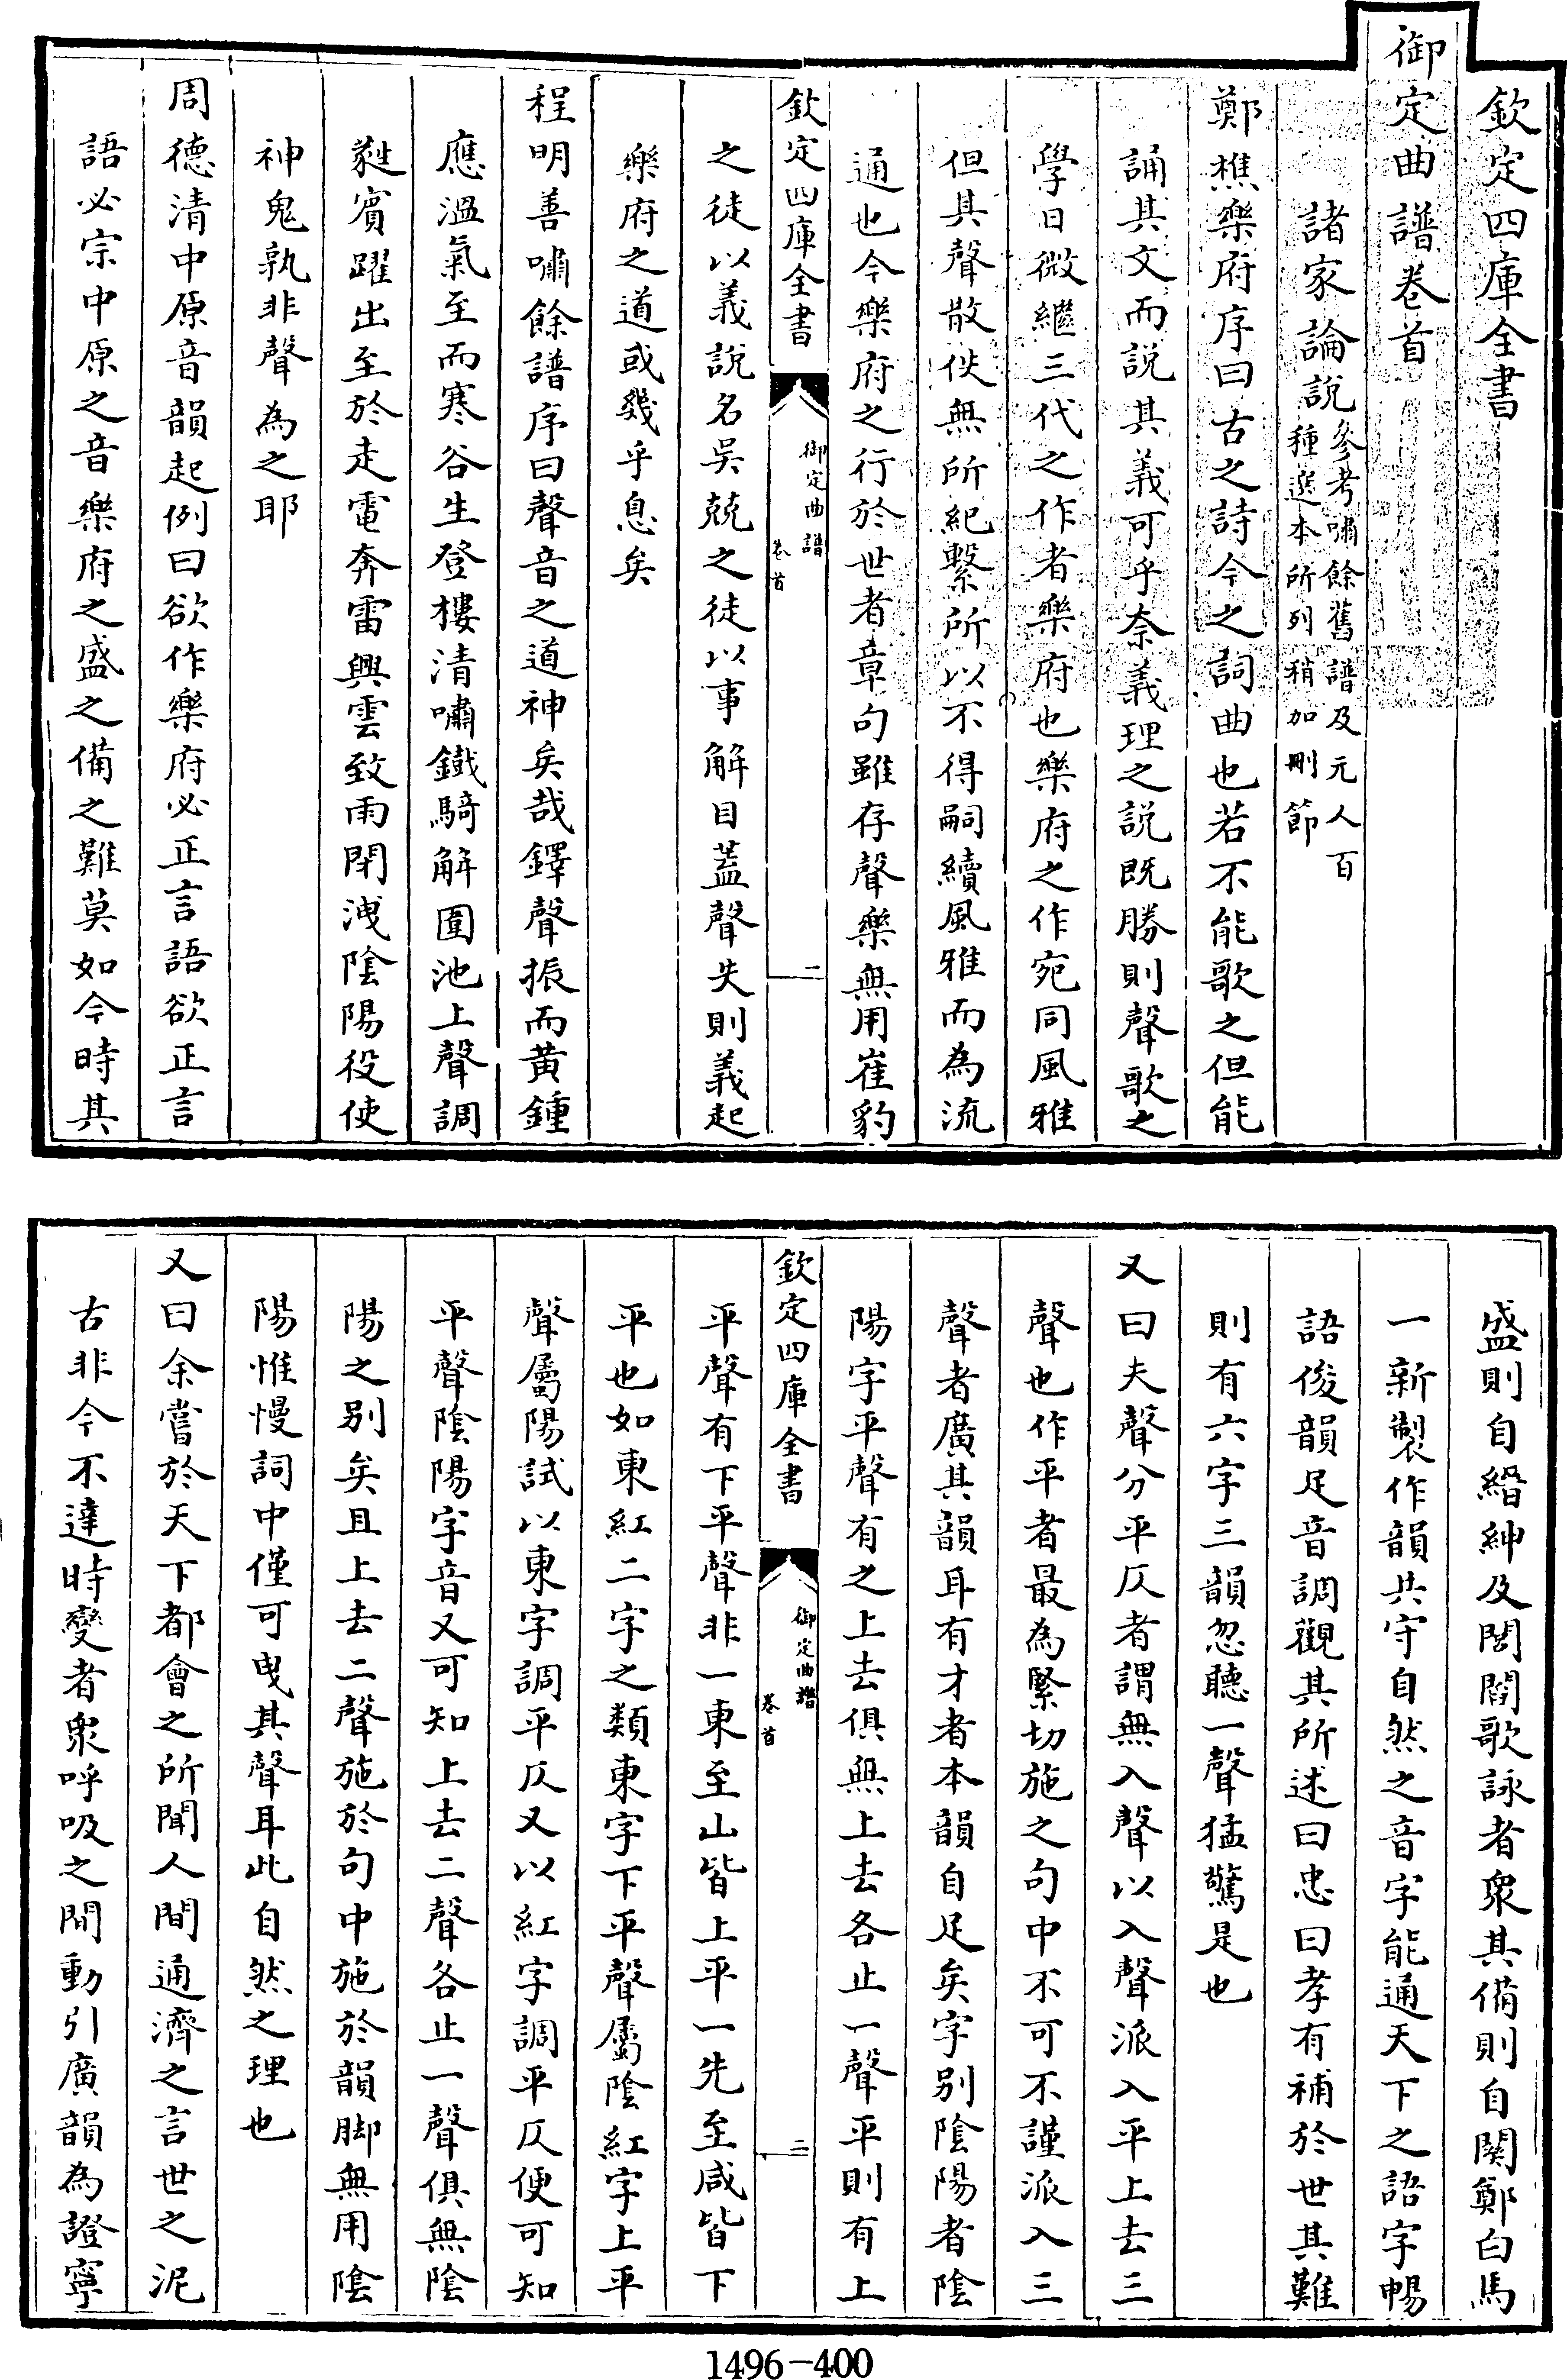 欽定四庫全書
御定曲譜卷首
諸家論說
參考嘯餘舊譜及元人百
種選本所列稍加刪節
鄭樵樂府序曰古之詩今之詞曲也若不能歌之但能
誦其文而說其義可乎奈義理之說既勝則聲歌之
學日微繼三代之作者樂府也樂府之作宛同風雅
但其聲散佚無所紀繫所以不得嗣續風雅而為流
通也今樂府之行於世者章句雖存聲樂無用崔豹
欽定四庫全書
御定曲譜
卷首
一
之徒以義說名吳兢之徒以事解目蓋聲失則義起
樂府之道或幾乎息矣
程明善嘯餘譜序曰聲音之道神矣哉鐸聲振而黃鍾
應溫氣至而寒谷生登樓清嘯鐵騎解圍池上聲調
蕤賓躍出至於走電奔雷興雲致雨閉洩陰陽役使
神鬼孰非聲為之耶
周德清中原音韻起例曰欲作樂府必正言語欲正言
語必宗中原之音樂府之盛之備之難莫如今時其
盛則自縉紳及閭閻歌詠者衆其備則自關鄭白馬
一新製作韻共守自然之音字能通天下之語字暢
語俊韻足音調觀其所述曰忠曰孝有補於世其難
則有六字三韻忽聽一聲猛驚是也
又曰夫聲分平仄者謂無入聲以入聲派入平上去三
聲也作平者最為緊切施之句中不可不謹派入三
聲者廣其韻耳有才者本韻自足矣字别陰陽者陰
陽字平聲有之上去俱無上去各止一聲平則有上
欽定四庫全書
御定曲譜
卷首
二
平聲有下平聲非一東至山皆上平一先至咸皆下
平也如東紅二字之類東字下平聲屬陰紅字上平
聲屬陽試以東字調平仄又以紅字調平仄便可知
平聲陰陽字音又可知上去二聲各止一聲俱無陰
陽之别矣且上去二聲施於句中施於韻脚無用陰
陽惟慢詞中僅可曳其聲耳此自然之理也
又曰余嘗於天下都會之所聞人間通濟之言世之泥
古非今不達時變者衆呼吸之間動引廣韻為證寧
1496-400